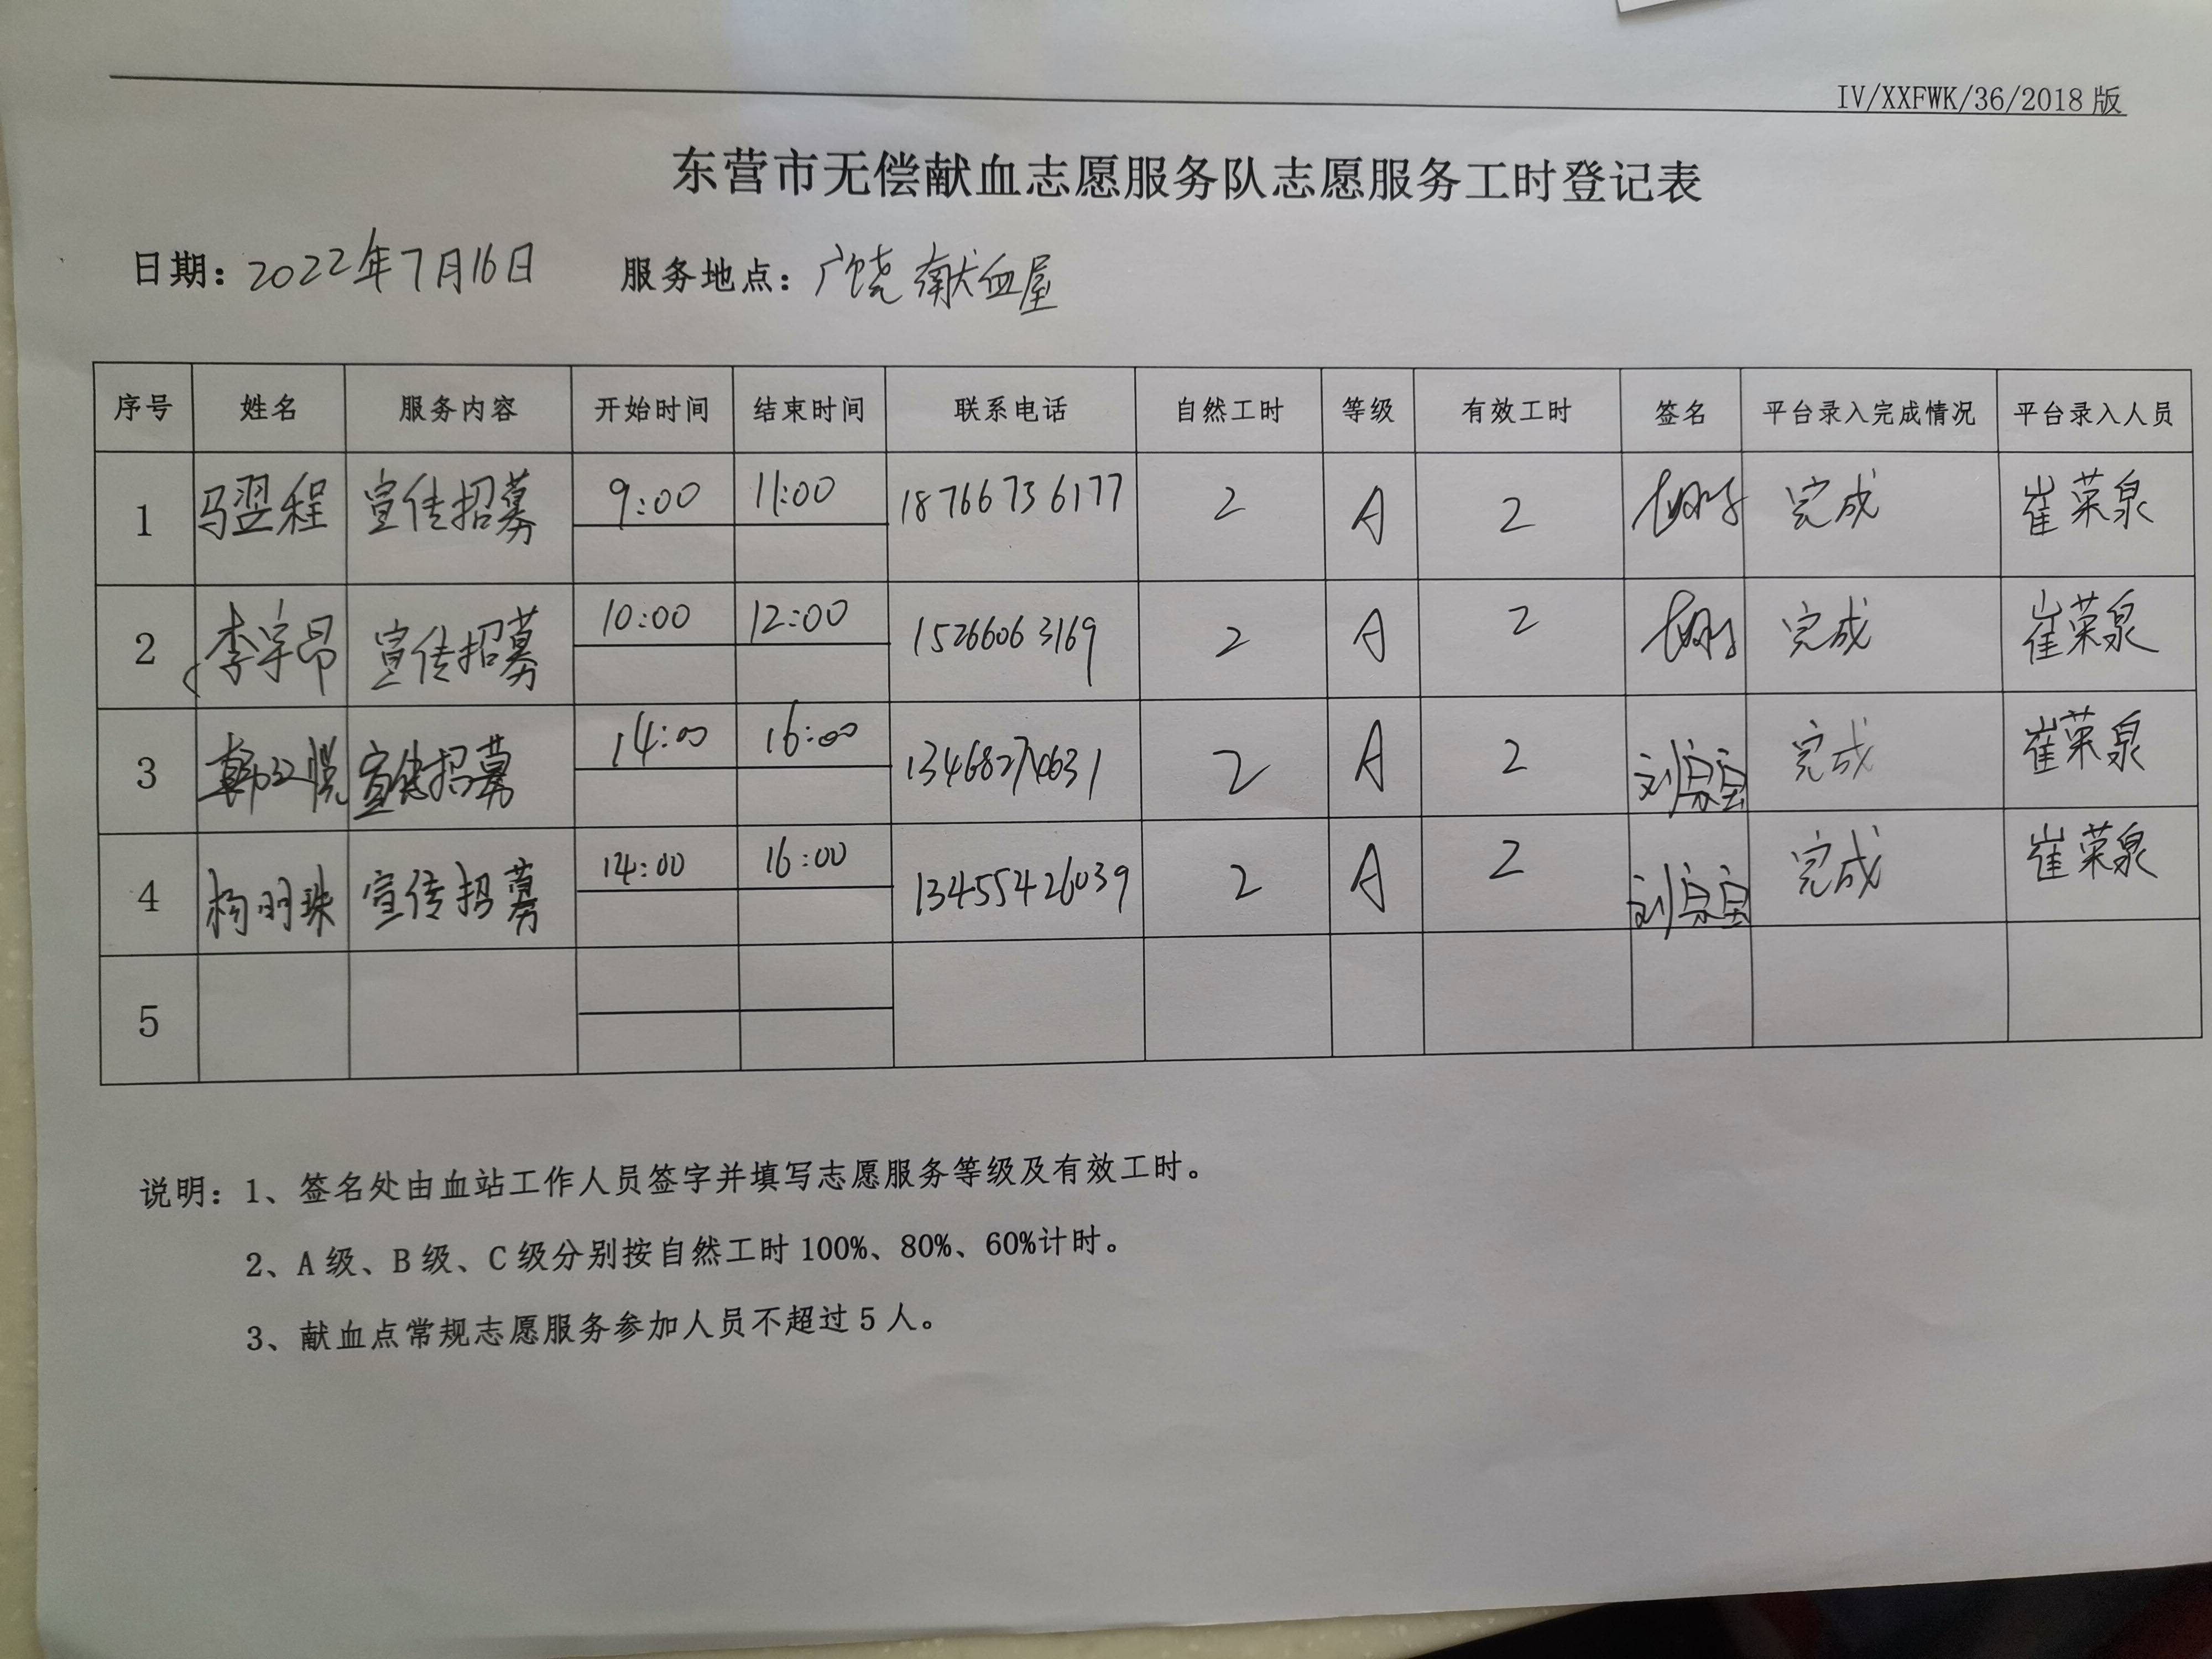 IV/XXFWK/36/2018版
东营市无偿献血志愿服务队志愿服务工时登记表
日期：2022年7月16日 服务地点：广饶献血屋
序号 姓名 服务内容 开始时间 结束时间 联系电话 自然工时 等级 有效工时 签名 平台录入完成情况 平台录入人员
1 马翌程 宣传招募 9:00 11:00 18766736177 2 A 2 完成 崔荣泉
2 李宇昂 宣传招募 10:00 12:00 15266063169 2 A 2 完成 崔荣泉
3 宣传招募 14:00 16:00 2 A 2 完成 崔荣泉
4 杨明珠 宣传招募 14:00 16:00 13455426039 2 A 2 完成 崔荣泉
5
说明：1、签名处由血站工作人员签字并填写志愿服务等级及有效工时。
2、A级、B级、C级分别按自然工时100%、80%、60%计时。
3、献血点常规志愿服务参加人员不超过5人。